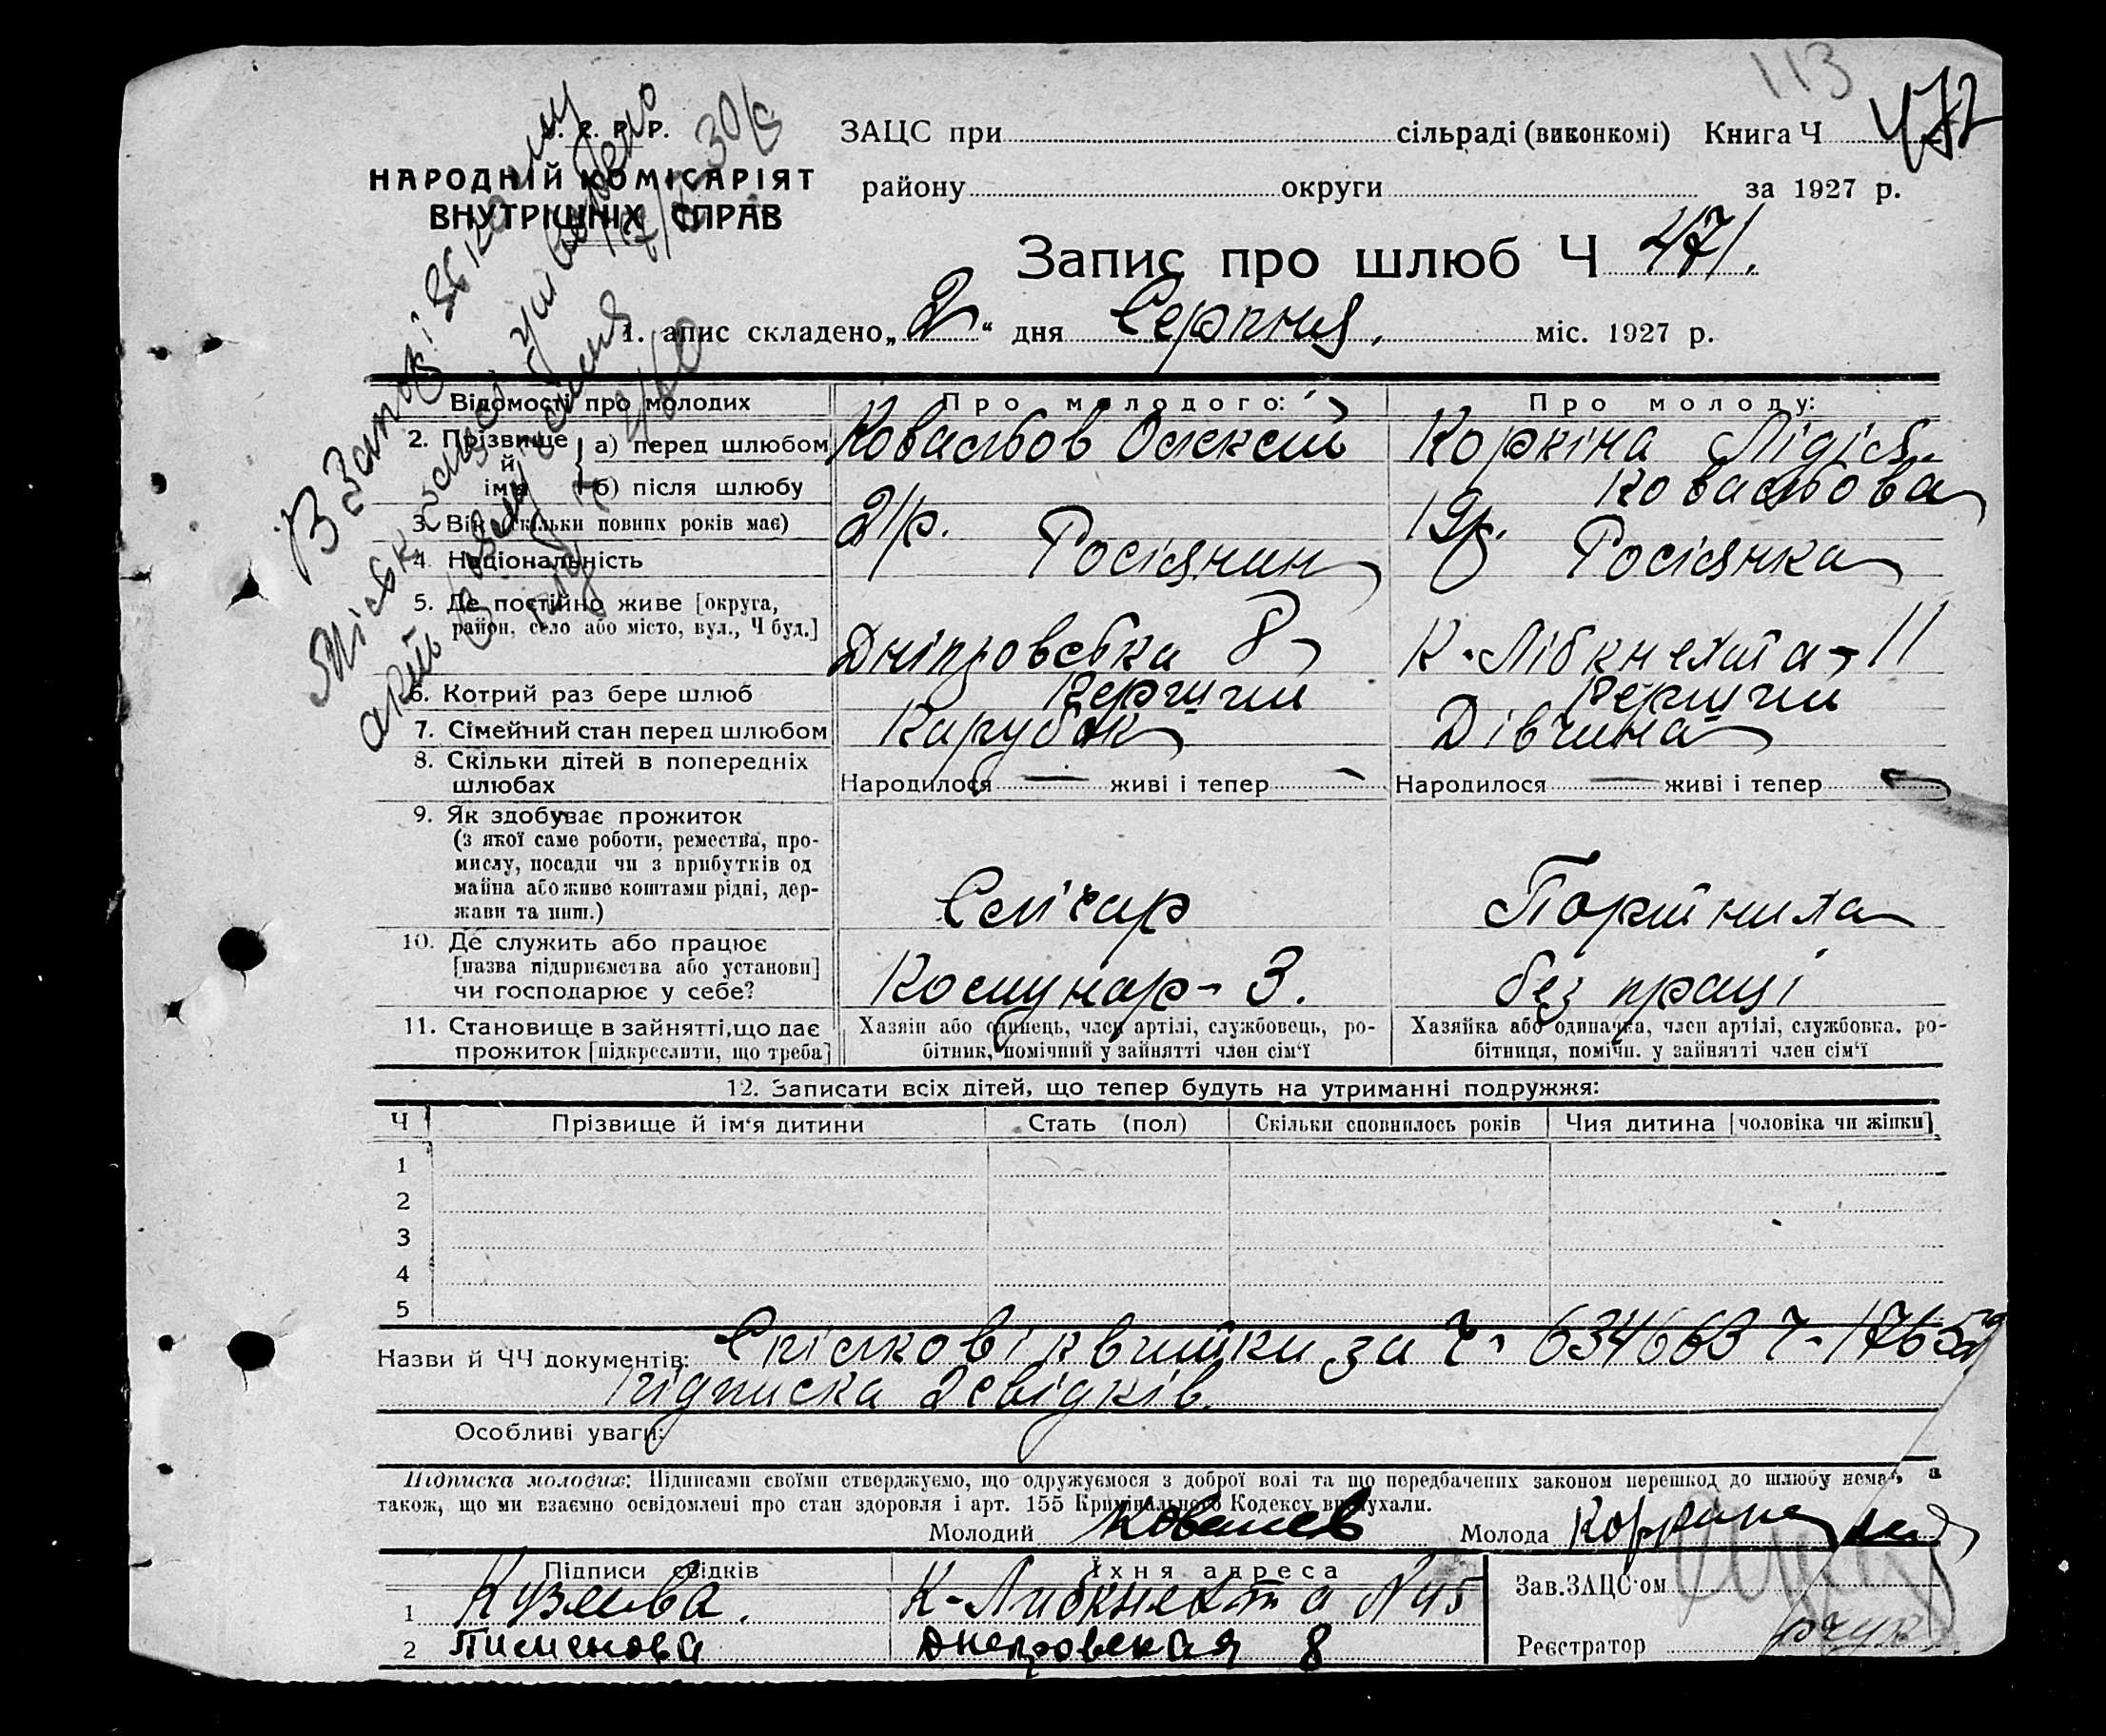 113
472
У. С. Р. Р.
НАРОДНІЙ КОМІСАРІЯТ
ВНУТРІШНІХ СПРАВ
ЗАЦС при сільраді (виконкомі) Книга Ч
району округи за 1927 р.
Запис про шлюб Ч 471.
1. апис складено „2“ дня Серпня, міс. 1927 р.
Відомості про молодих Про молодого: Про молоду:
2. Прізвище й ім'я а) перед шлюбом Ковальов Олексій Коркіна Лідія
б) після шлюбу Ковальова
3. Вік (скільки повних років має) 21р. 19р.
4. Національність Росіянин Росіянка
5. Де постійно живе [округа,
район, село або місто, вул., Ч буд.] Дніпровська 8 К. Лібкнехта 11
6. Котрий раз бере шлюб Перший Перший
7. Сімейний стан перед шлюбом Парубок Дівчина
8. Скільки дітей в попередніх
шлюбах Народилося — живі і тепер — Народилося — живі і тепер —
9. Як здобуває прожиток
(з якої саме роботи, ремества, про-
мислу, посади чи з прибутків од
майна або живе коштами рідні, дер-
жави та инш.) Слюсар Портниха
10. Де служить або працює
[назва підприємства або установи]
чи господарює у себе? Комунар- З. без праці
11. Становище в зайнятті, що дає
прожиток [підкреслити, що треба]
Хазяїн або одинець, член артілі, службовець, ро-
бітник, помічний у зайнятті член сім'ї
Хазяйка або одиначка, член артілі, службовка, ро-
бітниця, помічн. у зайнятті член сім'ї
12. Записати всіх дітей, що тепер будуть на утриманні подружжя:
Ч Прізвище й ім'я дитини Стать (пол) Скільки сповнилось років Чия дитина [чоловіка чи жінки]
1
2
3
4
5
Назви й ЧЧ документів: Спілкові квитки за ч- 634663 ч-
Підписка 2 свідків.
Особливі уваги:
Підписка молодих: Підписами своїми стверджуємо, що одружуємося з доброї волі та що передбачених законом перешкод до шлюбу нема, а
також, що ми взаємно освідомлені про стан здоровля і арт. 155 Кримінального Кодексу вислухали.
Молодий Ковалев Молода Коркина
Підписи свідків Їхня адреса
1 К-Либкнехта N 45
2 Пименова Днепровская 8
Зав.ЗАЦС'ом
Реєстратор